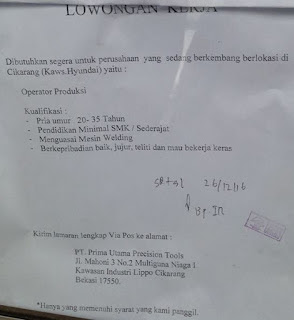 LOWONGAN KERJA
Dibutuhkan segera untuk perusahaan yang sedang berkembang berlokasi di
Cikarang (Kaws.Hyundai) yaitu :
Operator Produksi
Kualifikasi :
- Pria umur 20- 35 Tahun
- Pendidikan Minimal SMK / Sederajat
- Menguasai Mesin Welding
- Berkepribadian baik, jujur, teliti dan mau bekerja keras
26/12/16
Kirim lamaran lengkap Via Pos ke alamat :
PT. Prima Utama Precision Tools
Jl. Mahoni 3 No.2 Multiguna Niaga 1
Kawasan Industri Lippo Cikarang
Bekasi 17550.
*Hanya yang memenuhi syarat yang kami panggil.